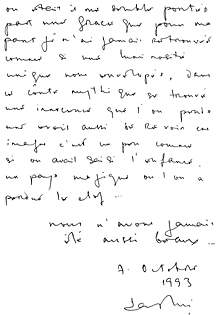 on était à me sembler portés
par une grâce que pour ma
part je n'ai jamais retrouvée
comme si une luminosité
unique nous enveloppait, dans
ce conte mythique se trouve
une innocence que l'on perd
une vraie aussi de revoir ces
images c'est un peu comme
si on avait saisi l'enfance
un pays magique où l'on a
perdu la clef ...
nous n'avons jamais
été aussi beaux ...
7. Octobre
1993